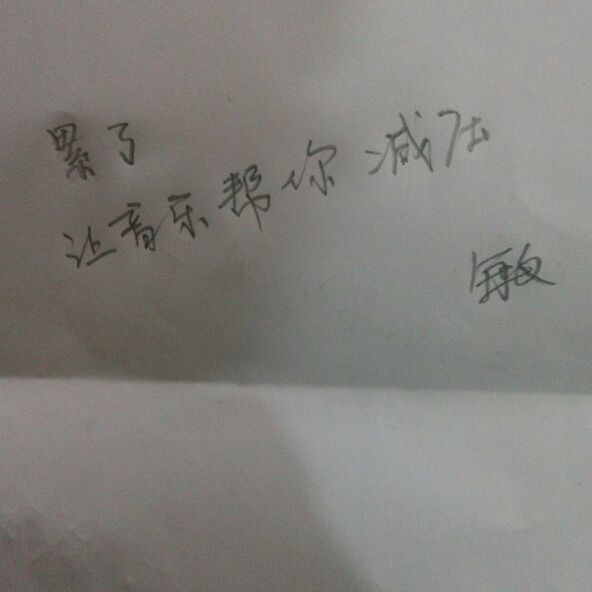 累了
让音乐帮你减压
敏